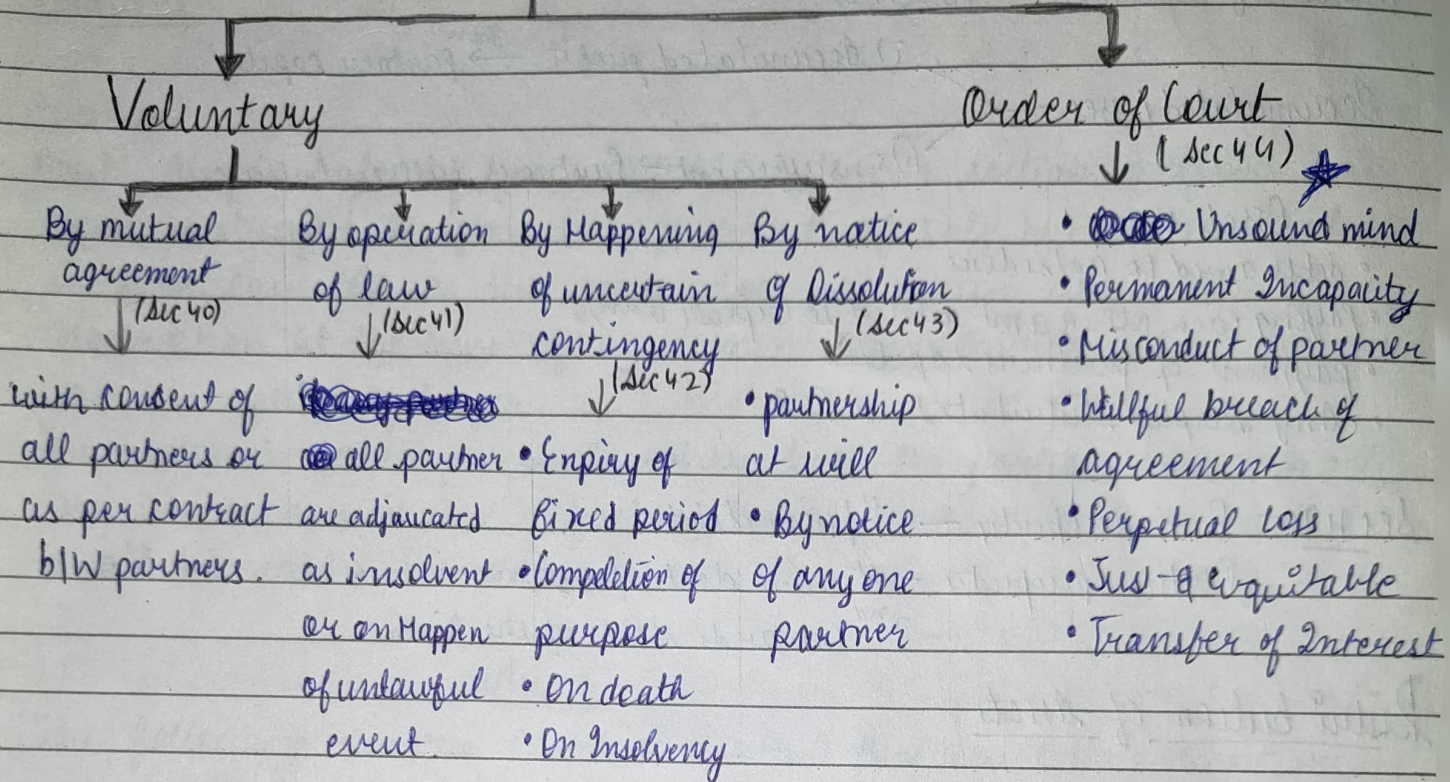 Voluntary
Order of Court
(Sec 44)
By mutual
agreement
(Sec 40)
with consent of
all partners or
as per contract
b/w partners.
By operation
of law
(Sec 41)
all partner
are adjaucated
as insolvent
or on Happen
of unlawful
event.
By Happening
of uncertain
contingency
(Sec 42)
• Expiry of
fixed period
• Compeletion of
purpose
• On death
• On Insolvency
By notice
of Dissolution
(Sec 43)
• partnership
at will
• By notice
of any one
partner
• Unsound mind
• Permanent Incapacity
• Misconduct of partner
• Willful breach of
agreement
• Perpetual loss
• Just & equitable
• Transfer of Interest